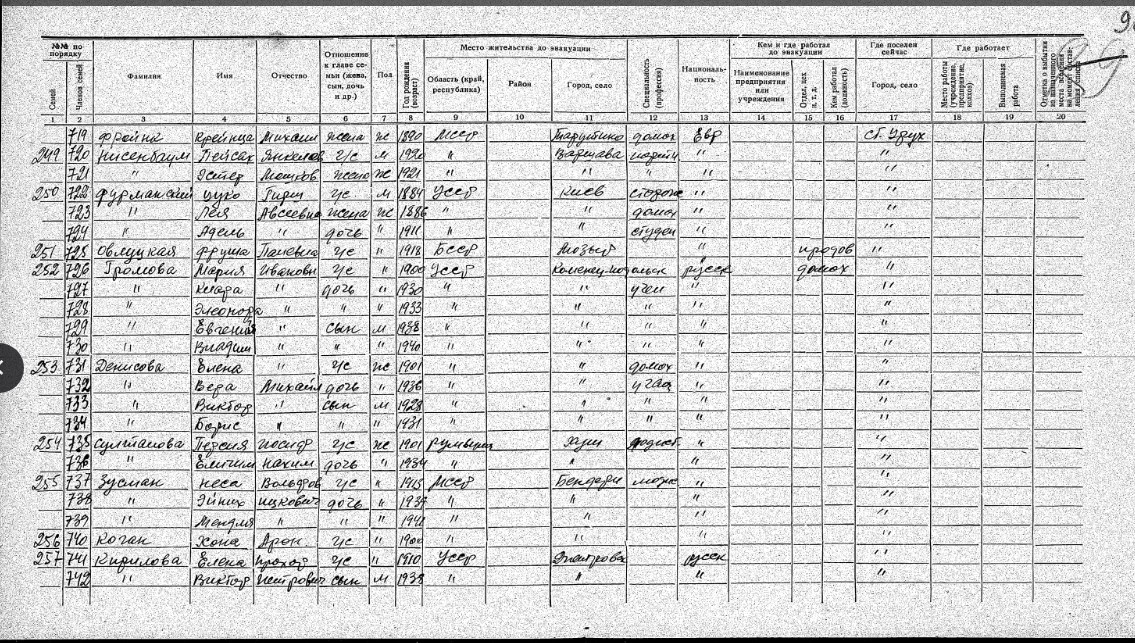 9
89
№№ по порядку Фамилия Имя Отчество Отношение к главе семьи (жена, сын, дочь и др.) Пол Год рождения (возраст) Место жительства до эвакуации Специальность (профессия) Национальность Кем и где работал до эвакуации Где поселен сейчас Где работает
Семей Членов семей Область (край, республика) Район Город, село Наименование предприятия или учреждения Отдел, цех и т. д. Кем работал (должность) Город, село Место работы (учреждение, предприятие, колхоз) Выполняемая работа
1 2 3 4 5 6 7 8 9 10 11 12 13 14 15 16 17 18 19 20
719 Фройна Крейнца Михаил жена ж 1890 МССР Тарутино домох Евр ст. Урух
249 720 Нисенбаум Пейсах Янкелев г/с м 1920 " Варшава " "
721 " Эстер Мошков жена ж 1921 " " " " "
250 722 Фурманский Гирш г/с м 1884 УССР Киев сторож " "
723 " Лея Авсеевна жена ж 1886 " " домох " "
724 " Адель " дочь " 1911 " " студен " "
251 725 Фруша г/с " 1918 БССР Мозырь " продов "
252 726 Громова Мария Ивановн г/с " 1900 УССР Каменец-Подольск русск домох "
727 " Клара " дочь " 1930 " " учен " "
728 " Элеонора " " " 1933 " " " " "
729 " Евгений " сын м 1938 " " " " "
730 " Владим " " " 1940 " " " " "
253 731 Денисова Елена г/с ж 1901 " " домох " "
732 " Вера Михаил дочь " 1936 " " учащ " "
733 " Виктор " сын м 1928 " " " " "
734 " Борис " " " 1931 " " " " "
254 735 Султанова Персия Иосиф г/с ж 1901 Румыния " "
736 " Нахим дочь " 1934 " " " "
255 737 Зусман Неса Вольфов г/с " 1915 МССР Бендери " "
738 " Эйних Ицкович дочь " 1937 " " "
739 " Мендля " " " 1941 " " "
256 740 Коган Хона Арон г/с " 1900 " " " "
257 741 Кирилова Елена Прохор г/с " 1910 УССР русск "
742 " Виктор Петрович сын м 1938 " " " "